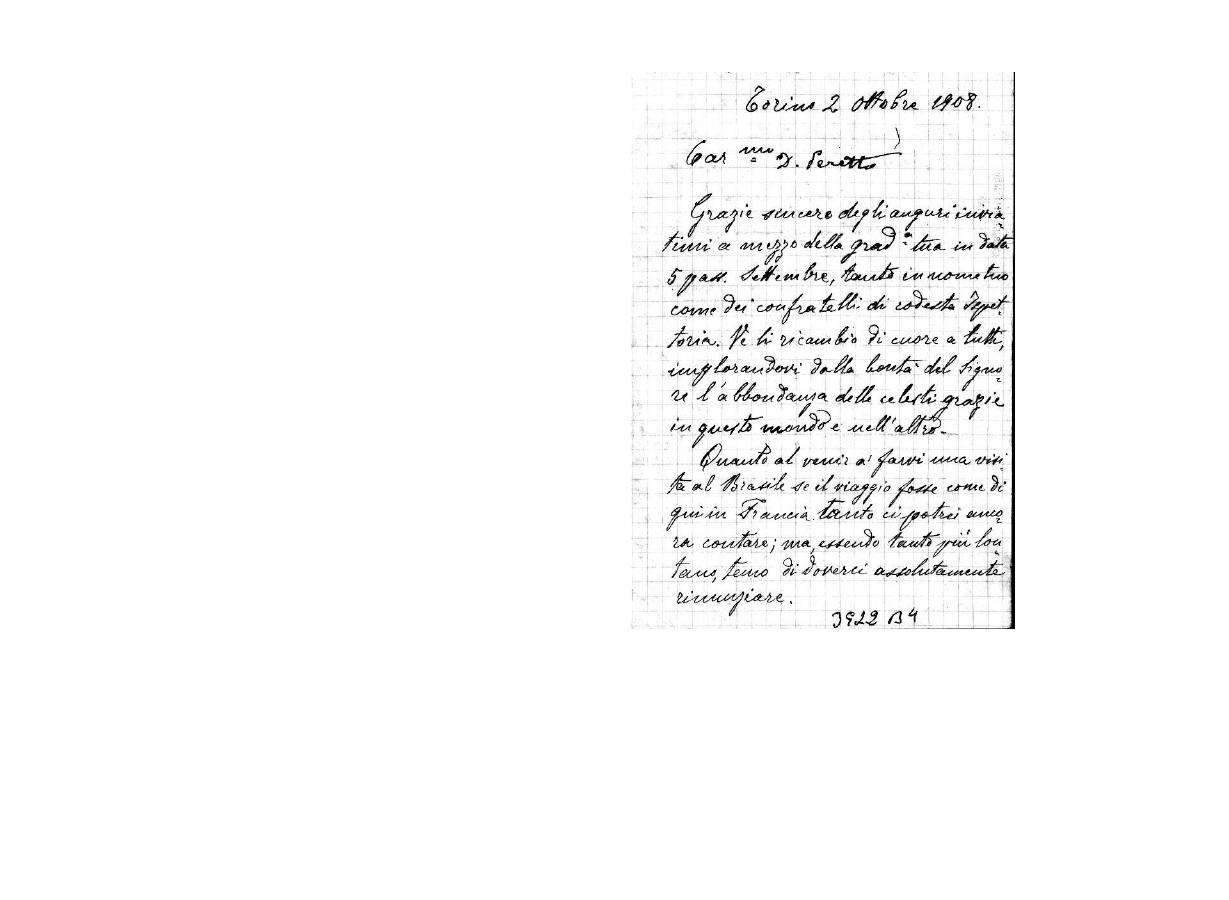 Torino 2 Ottobre 1908.
Car mo D. Peretto
Grazie sincere degli auguri invia-
timi a mezzo della grad.a tua in data
5 pass. Settembre, tanto in nome tuo
come dei confratelli di codesta Ispet-
toria. Ve li ricambio di cuore a tutti,
implorandovi dalla bontà del Signo-
re l'abbondanza delle celesti grazie
in questo mondo e nell'altro.
Quanto al venir a farvi una visi-
ta al Brasile se il viaggio fosse come di
qui in Francia tanto ci potrei anco-
ra contare; ma, essendo tanto più lon-
tano, temo di doverci assolutamente
rinunziare.
3922 B4